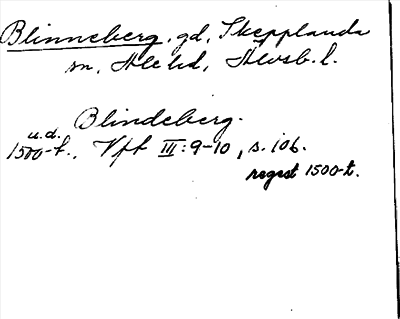 Blinneberg, gd, Skepplanda
sn, Ale hd, Älvsb. l.
Blindeberg.
u.d.
1500-t., Vft III: 9-10, s. 106.
regest 1500-t.